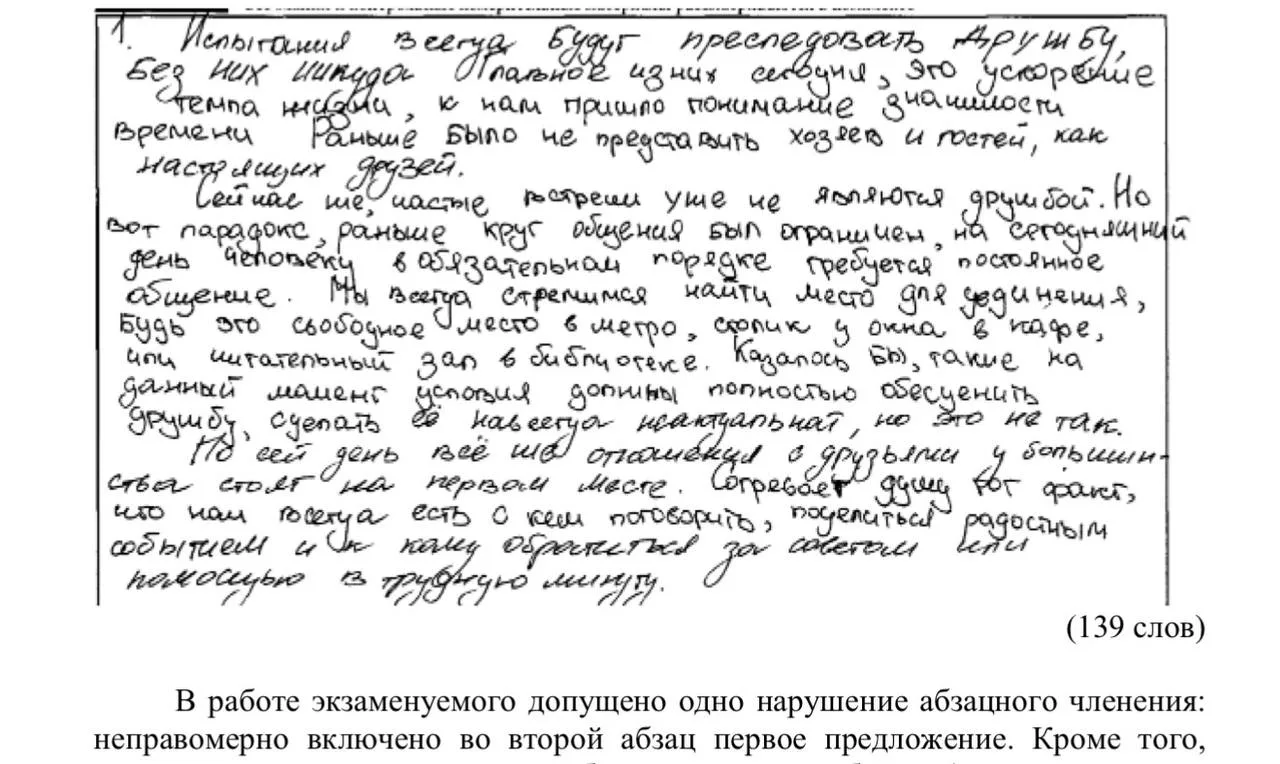 1. Испытания всегда будут преследовать дружбу,
без них никуда Главное из них сегодня, это ускорение
темпа жизни, к нам пришло понимание значимости
времени Раньше было не представить хозяев и гостей, как
настоящих друзей.
Сейчас же, частые встречи уже не являются дружбой. Но
вот парадокс, раньше круг общения был ограничен, на сегодняшний
день человеку в обязательном порядке требуется постоянное
общение. Мы всегда стремимся найти место для уединения,
будь это свободное место в метро, столик у окна в кафе,
или читательный зал в библиотеке. Казалось бы, такие на
данный момент условия должны полностью обесценить
дружбу, сделать её навсегда неактуальнат, но это не так.
По сей день всё же отношения с друзьями у большин-
ства стоят на первом месте. Согревает душу тот факт,
что нам всегда есть с кем поговорить, поделиться радостным
событием и к кому обратиться за советом или
помощью в трудную минуту.
(139 слов)
В работе экзаменуемого допущено одно нарушение абзацного членения:
неправомерно включено во второй абзац первое предложение. Кроме того,